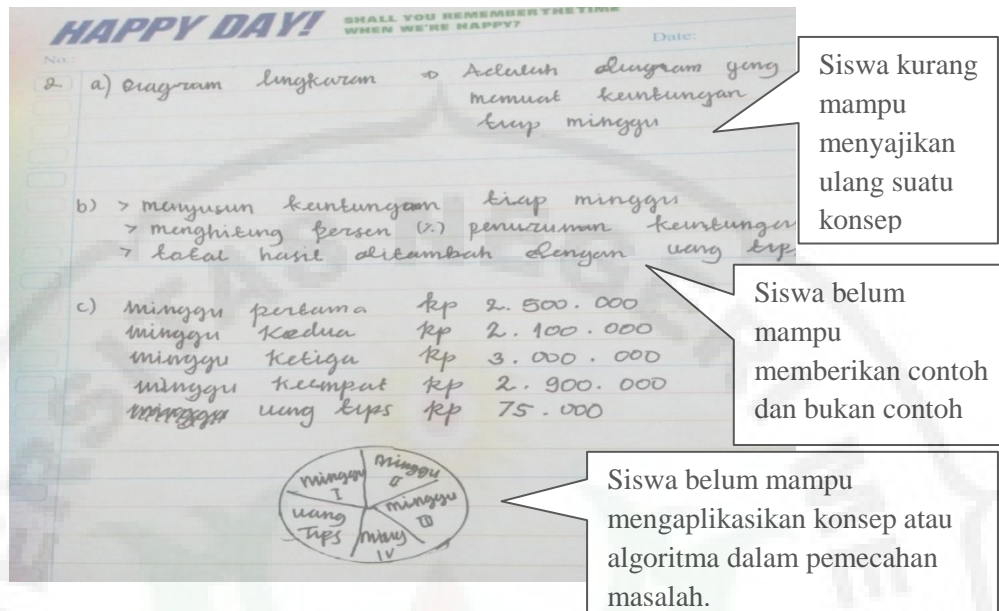 HAPPY DAY!
SHALL YOU REMEMBER THE TIME
WHEN WE'RE HAPPY?
No.:
Date:
2. a) Diagram lingkaran → Adalah diagram yang
memuat keuntungan
tiap minggu
b) > menyusun keuntungan tiap minggu
> menghitung persen (%) penurunan keuntungan
> total hasil ditambah dengan uang tips
c) minggu pertama Rp 2.500.000
minggu kedua Rp 2.100.000
minggu ketiga Rp 3.000.000
minggu keempat Rp 2.900.000
uang tips Rp 75.000
minggu
I
minggu
II
minggu
III
uang
Tips
IV
Siswa kurang
mampu
menyajikan
ulang suatu
konsep
Siswa belum
mampu
memberikan contoh
dan bukan contoh
Siswa belum mampu
mengaplikasikan konsep atau
algoritma dalam pemecahan
masalah.